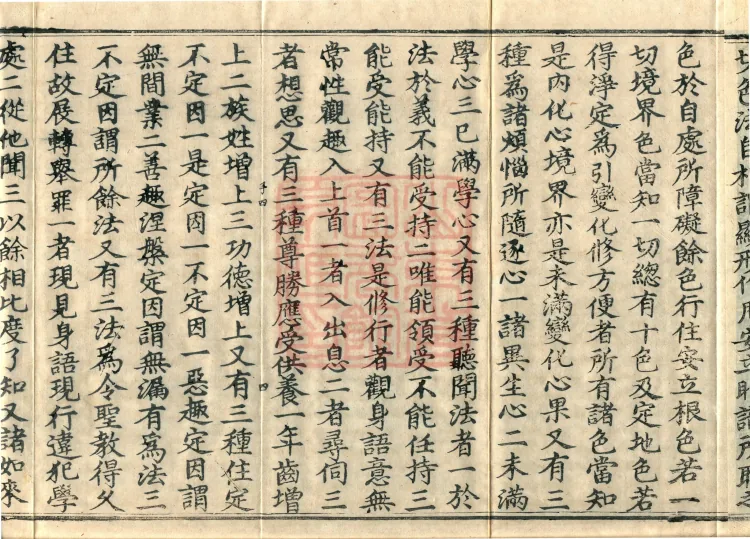 切色法自相謂顯形作用安立眼識所取
色於自處所障礙餘色行住安立根色若一
切境界色當知一切總有十色及定地色若
得淨定爲引變化修方便者所有諸色當知
是內化心境界亦是未滿變化心果又有三
種爲諸煩惱所隨逐心一諸異生心二未滿
學心三已滿學心又有三種聽聞法者一於
法於義不能受持二唯能領受不能任持三
能受能持又有三法是修行者觀身語意無
常性觀趣入上首一者入出息二者尋伺三
者想思又有三種尊勝應受供養一年齒增
四
上二族姓增上三功德增上又有三種住定
不定因一是定因一不定因一惡趣定因謂
無間業二善趣涅槃定因謂無漏有爲法三
不定因謂所餘法又有三法爲令聖教得久
住故展轉舉罪一者現見身語現行違犯學
處二從他聞三以餘相比度了知又諸如來